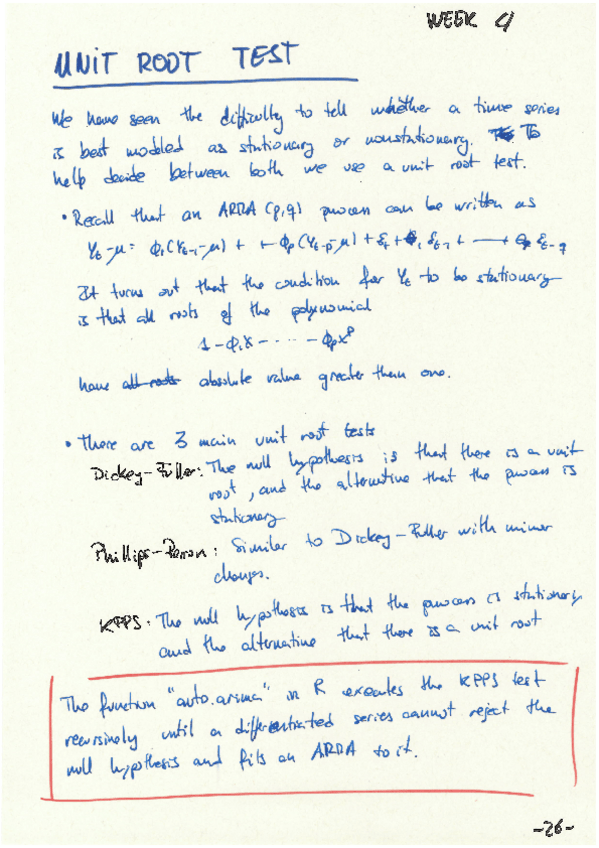 WEEK 4
UNIT ROOT TEST
We have seen the difficulty to tell whether a time series
is best modeled as stationary or nonstationary. To
help decide between both we use a unit root test.
• Recall that an ARMA (p,q) process can be written as
Yt-μ = ϕ1(Yt-1-μ) + — + ϕp(Yt-p-μ) + εt + θ1 εt-1 + —— + θq εt-q
It turns out that the condition for Yt to be stationary
is that all roots of the polynomial
1 - ϕ1x - ···· - ϕpx^p
have absolute value greater than one.
• There are 3 main unit root tests
Dickey-Fuller: The null hypothesis is that there is a unit
root, and the alternative that the process is
stationary
Phillips-Perron: Similar to Dickey-Fuller with minor
changes.
KPPS: The null hypothesis is that the process is stationary
and the alternative that there is a unit root
The function "auto.arima" in R executes the KPPS test
recursively until a differentiated series cannot reject the
null hypothesis and fits an ARMA to it.
-26-